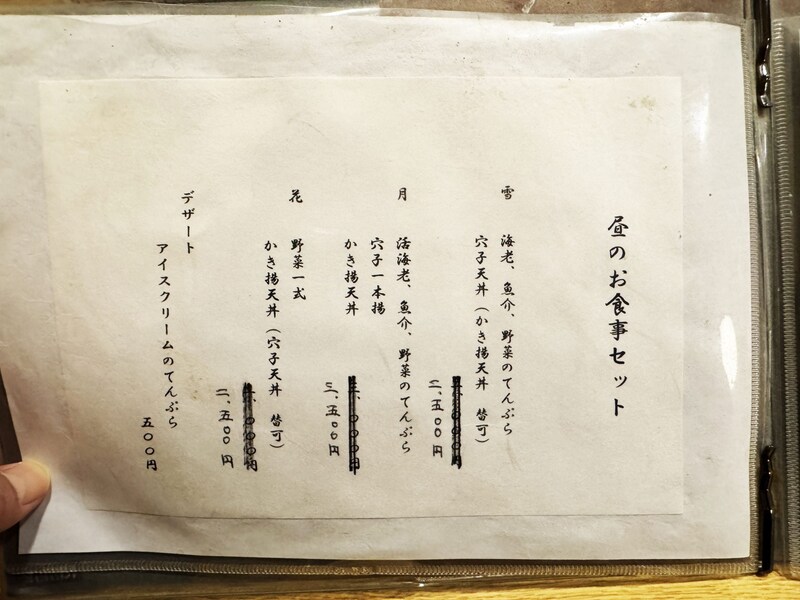 昼のお食事セット
雪 海老、魚介、野菜のてんぷら
穴子天丼（かき揚天丼 替可）
二、五〇〇円
月 活海老、魚介、野菜のてんぷら
穴子一本揚
かき揚天丼
三、五〇〇円
花 野菜一式
かき揚天丼（穴子天丼 替可）
二、五〇〇円
デザート
アイスクリームのてんぷら
五〇〇円